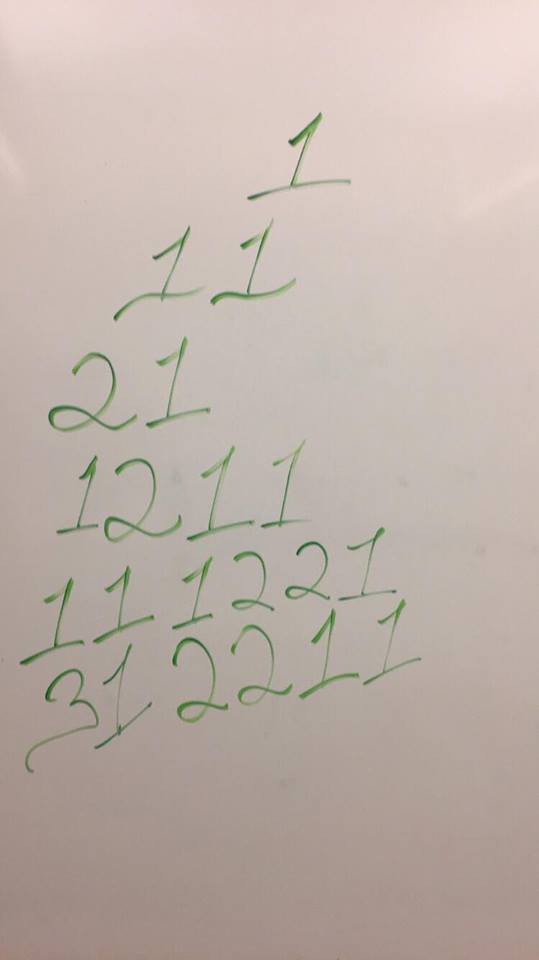 1
11
21
1211
111221
312211